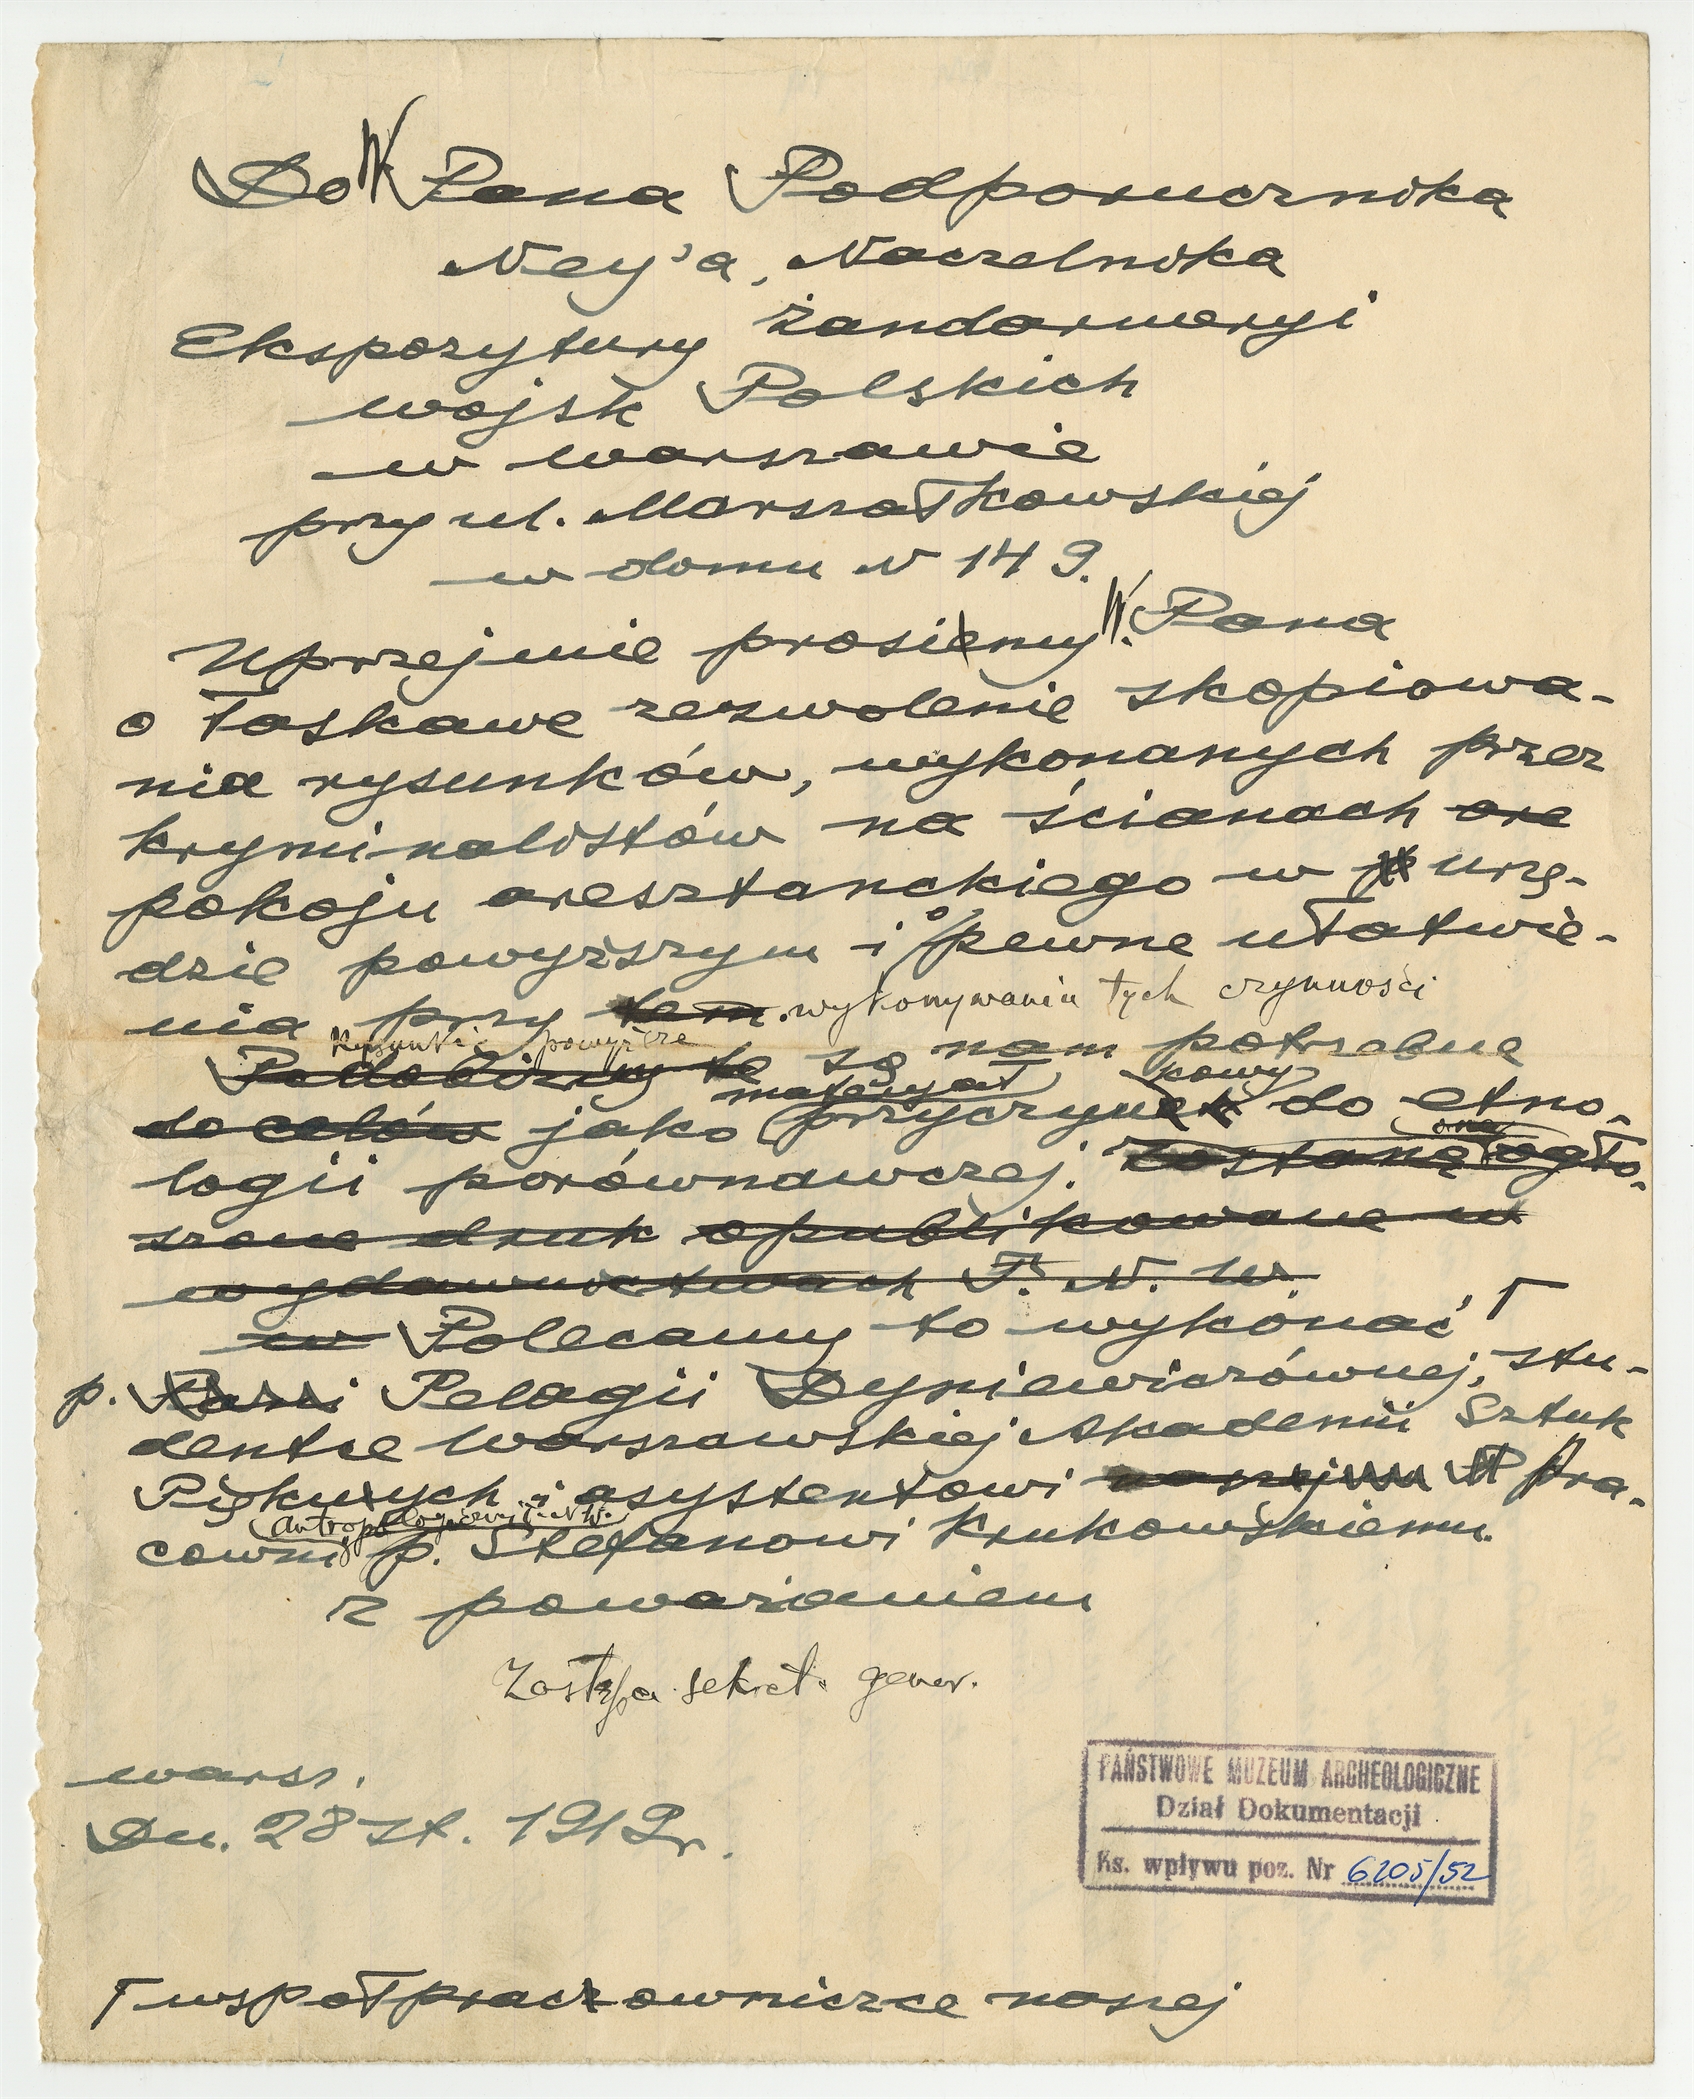 Do W Pana Podporucznika
Ney'a, Naczelnika
Ekspozytury żandarmeryi
wojsk Polskich
w Warszawie
przy ul. Marszałkowskiej
w domu N 149.
Uprzejmie prosimy W. Pana
o łaskawe zezwolenie skopiowa-
nia rysunków, wykonanych przez
kryminalistów na ścianach are
pokoju aresztanckiego w urzę-
dzie powyższym i o pewne ułatwie-
nia przy tem. wykonywaniu tych czynności
Rysunki powyższe
Podobizny te są nam potrzebne
materyał kowy
do celów jako przyczynek do etno-
one
logii porównawczej. Zostaną ogło-
szone druk opublikowane w
wydawnictwach T. N. W.
w Polecamy to wykonać Γ
p. Pani Pelagii Dyniewiczównej, stu-
dentce Warszawskiej Akademii Sztuk
Pięknych i asystentowi naszej Pra-
antropologicznej T. N. W.
cowni p. Stefanowi Krukowskiemu.
z poważaniem
Zastępca sekret. gener.
Warsz.
Dn. 28 st. 1919 r.
PAŃSTWOWE MUZEUM ARCHEOLOGICZNE
Dział Dokumentacji
Ks. wpływu poz. Nr 6205/52
Γ współpracowniczce naszej